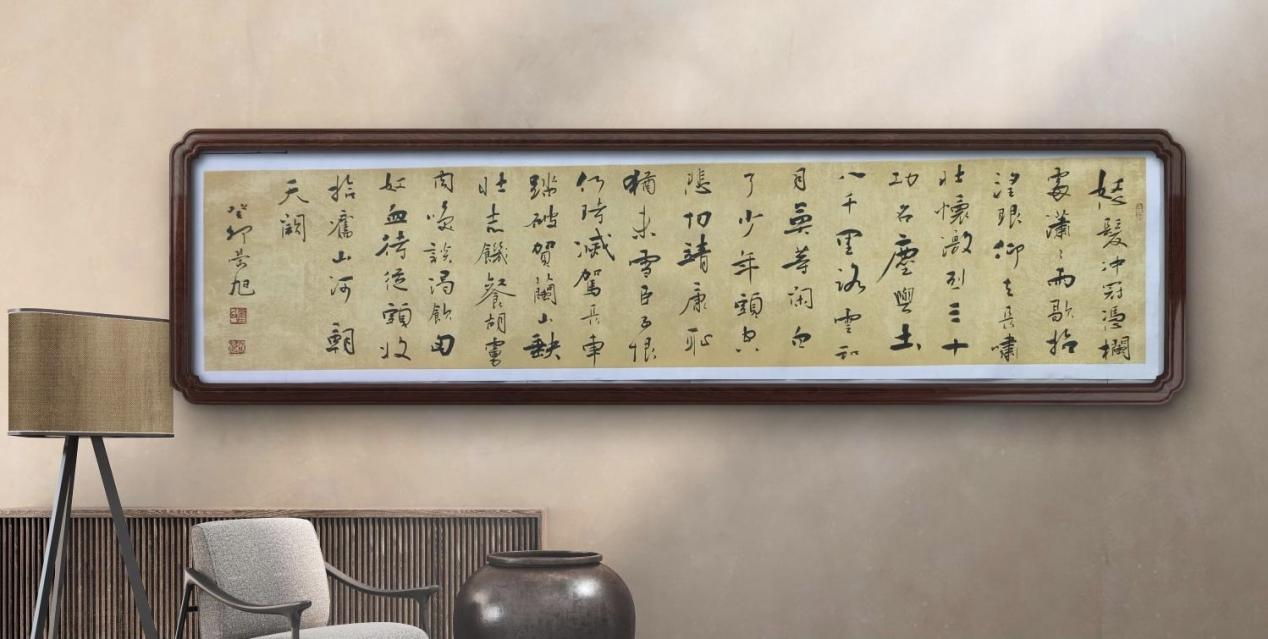 怒髮冲冠憑欄
處瀟〻雨歇抬
望眼仰天長嘯
壯懷激烈三十
功名塵與土
八千里路雲和
月莫等闲白
了少年頭空
悲切靖康恥
猶未雪臣子恨
何時滅駕長車
踏破賀蘭山缺
壯志饑餐胡虜
肉咲談渴飲匈
奴血待從頭收
拾舊山河朝
天闕
癸卯旭